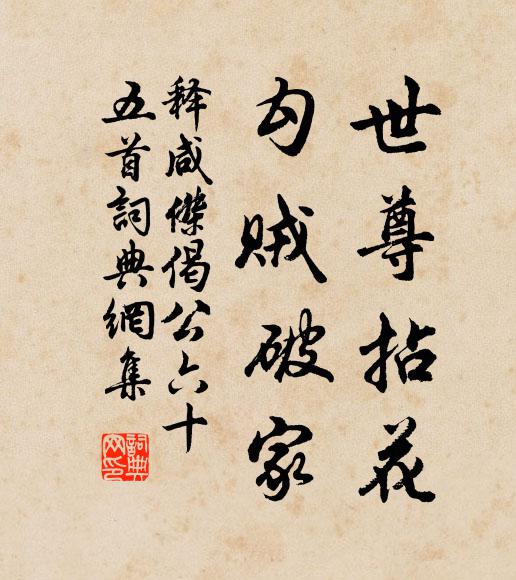 世尊拈花
勾贼破家
释咸傑偈公六十
五首詞典網集
詞典
网印